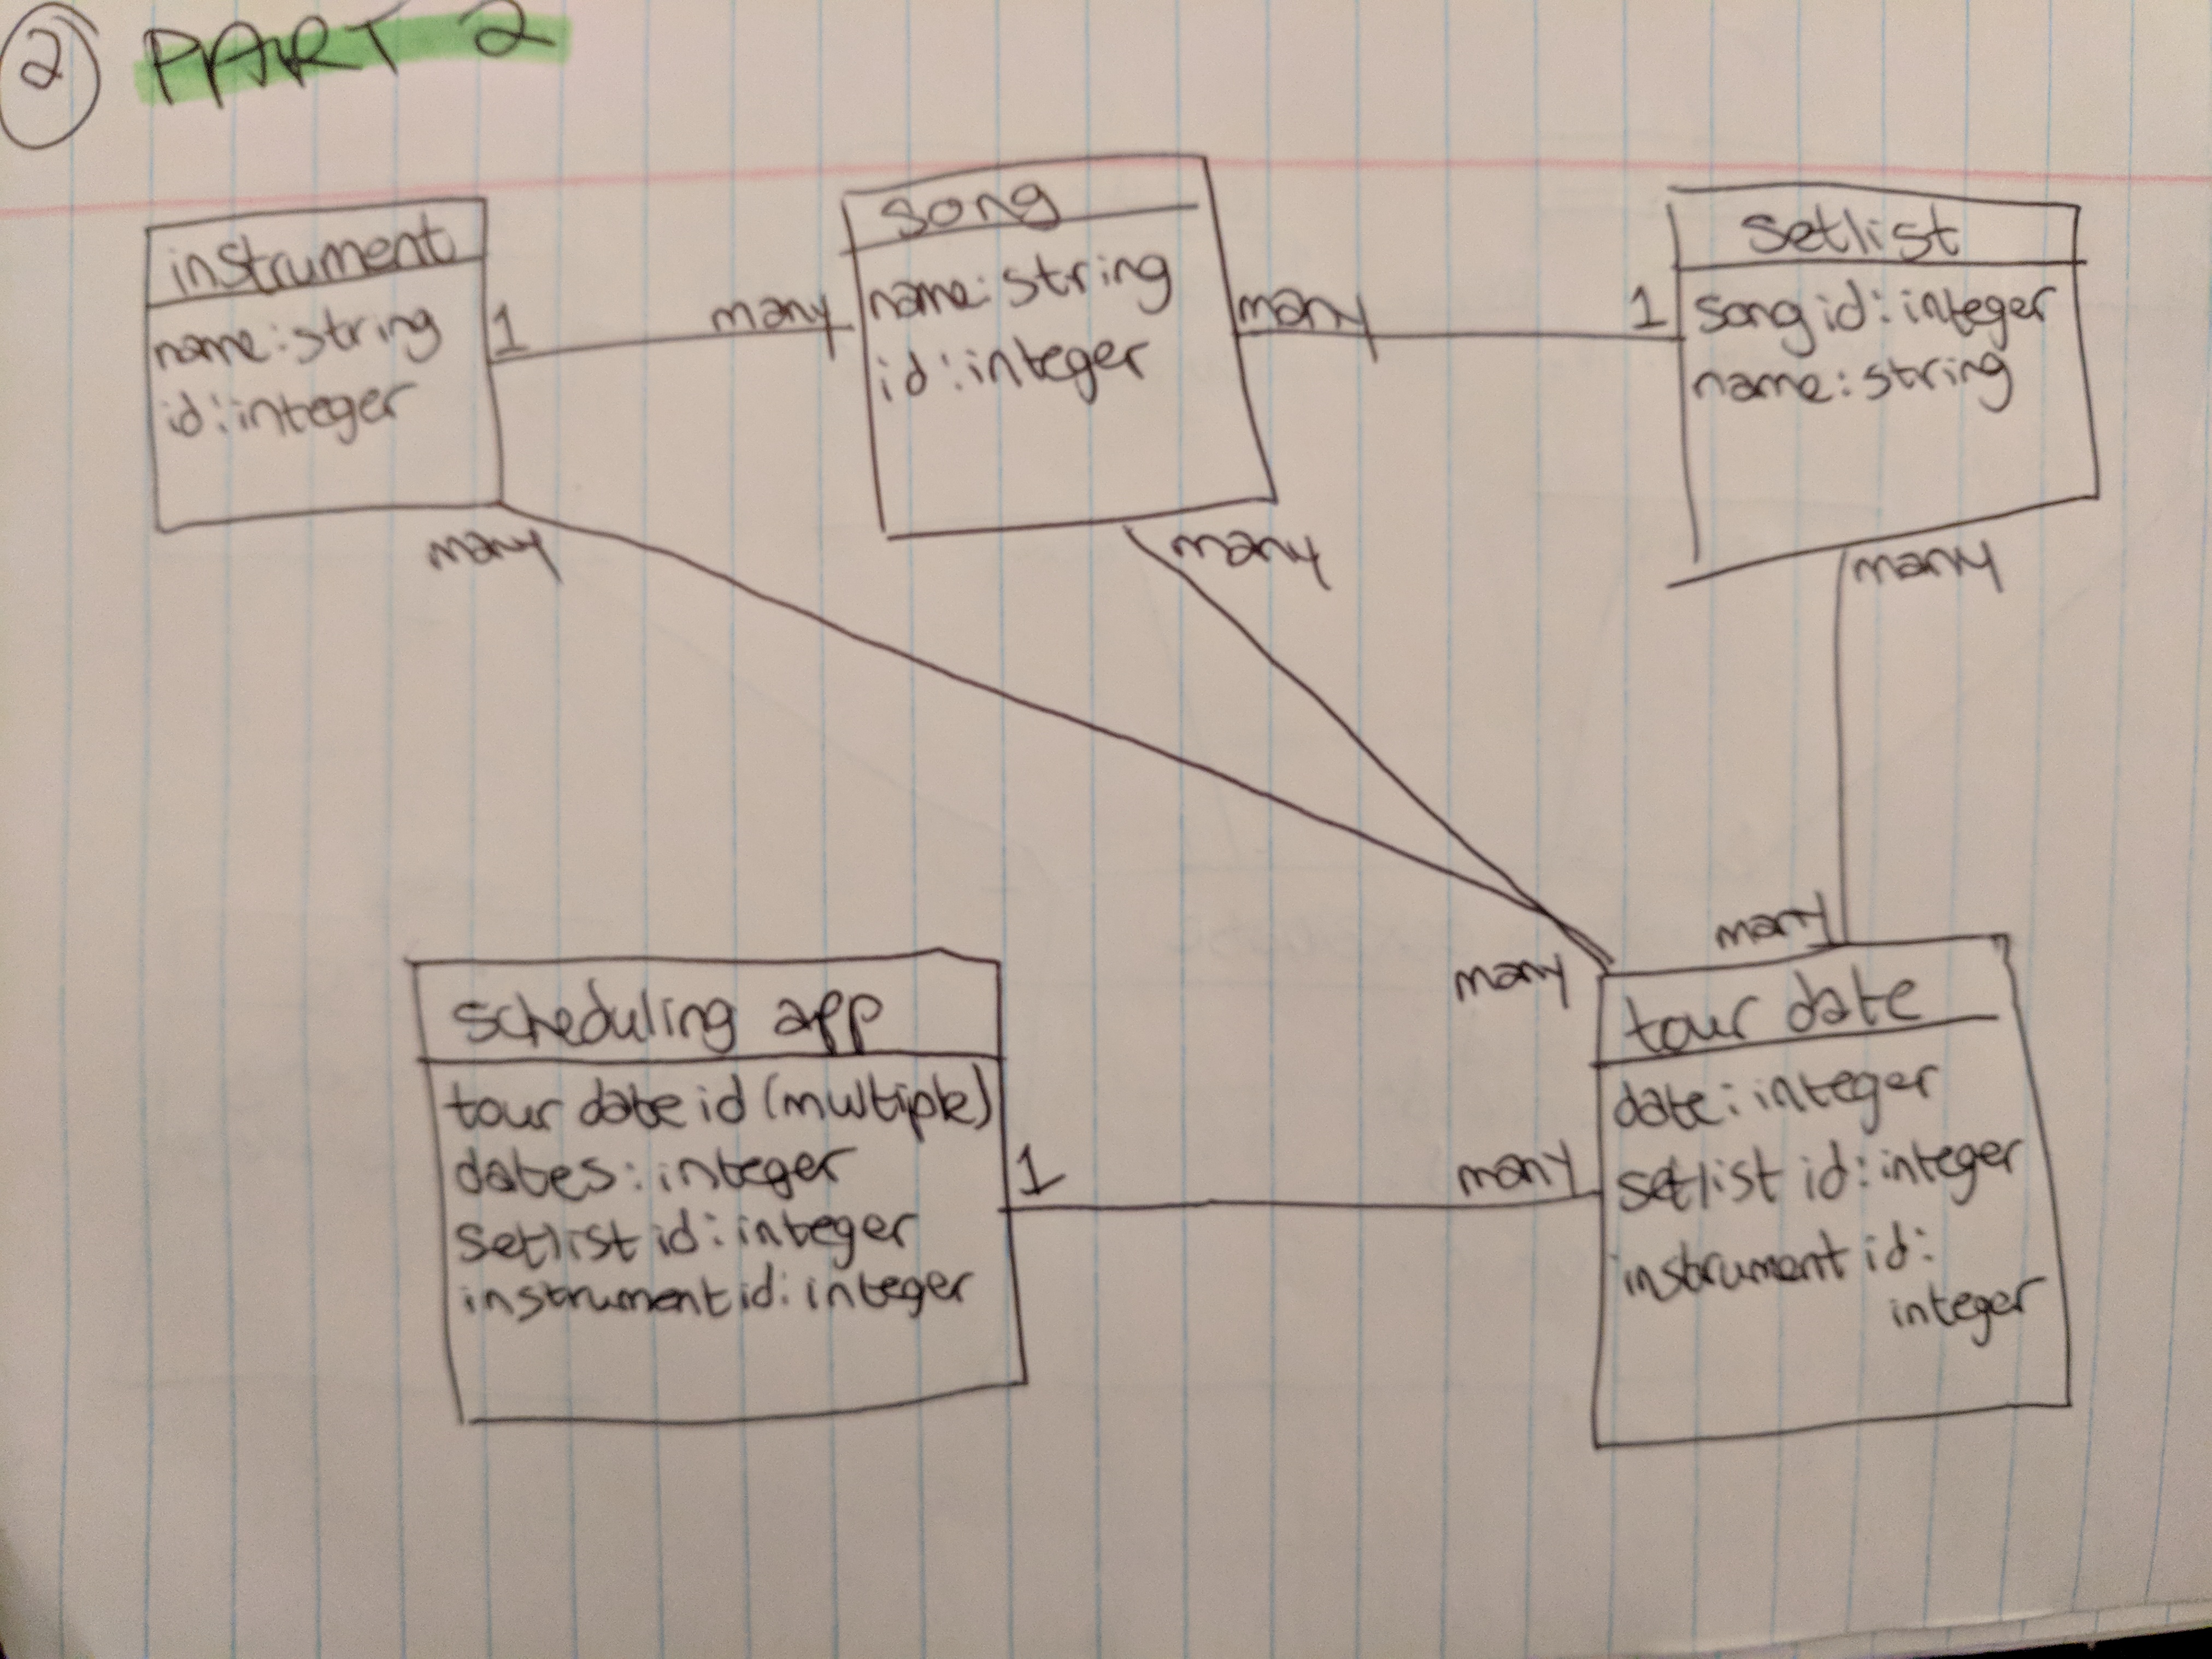 2 PART 2
instrument
name: string
id: integer
1
many
many
song
name: string
id: integer
many
many
setlist
song id: integer
name: string
1
many
many
many
scheduling app
tour date id (multiple)
dates: integer
setlist id: integer
instrument id: integer
1
many
tour date
date: integer
setlist id: integer
instrument id:
integer